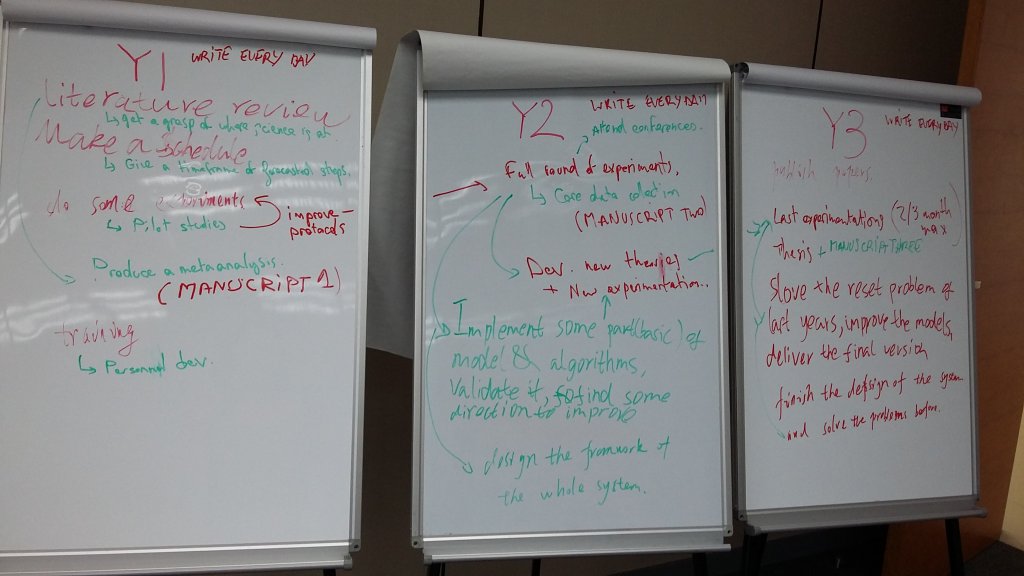 Y1
WRITE EVERY DAY
Literature review
↳ get a grasp of where science is at
Make a schedule
↳ Give a timeframe of forecasted steps.
do some experiments
↳ Pilot studies
improve-
protocols
Produce a meta analysis.
(MANUSCRIPT 1)
training
↳ Personnal dev.
Y2
WRITE EVERY DAY
Attend conferences.
Full round of experiments,
↳ Core data collection
(MANUSCRIPT TWO)
Dev. new theories
+ New experimentation..
Implement some part(basic) of
model & algorithms,
validate it, to find some
direction to improve
design the framwork of
the whole system.
Y3
WRITE EVERYDAY
publish papers
Last experimentations (2/3 month
max)
thesis + MANUSCRIPT THREE
Slove the reset problem of
last years, improve the models,
deliver the final version
finish the defsign of the system
and solve the problems before.